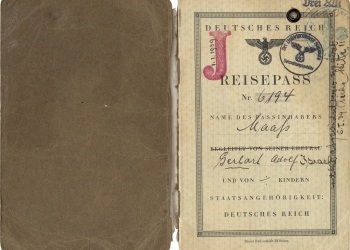 Drei RM
DEUTSCHES REICH
J
REISEPASS
Nr. 6194
NAME DES PASSINHABERS
Maaß
BEGLEITET VON SEINER EHEFRAU
Gerhart Adolf Israel
UND VON - KINDERN
STAATSANGEHÖRIGKEIT:
DEUTSCHES REICH